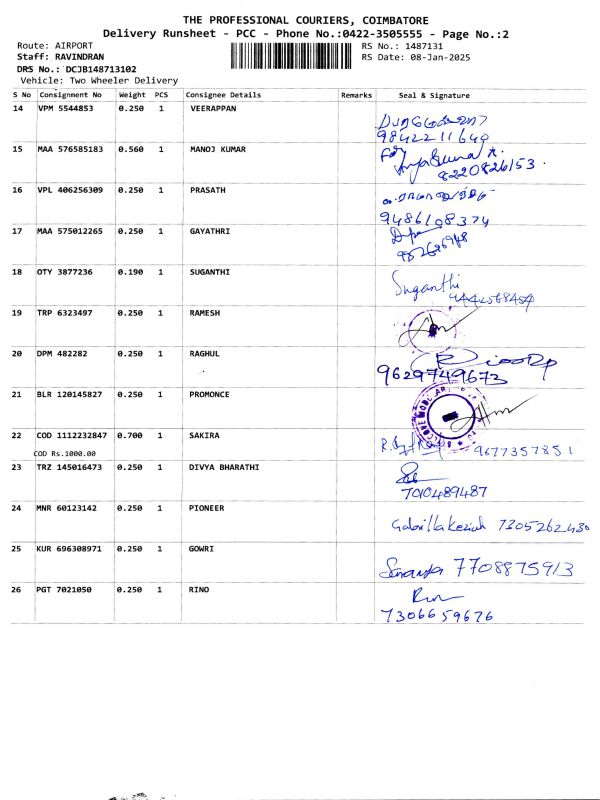 THE PROFESSIONAL COURIERS, COIMBATORE
Delivery Runsheet - PCC - Phone No.:0422-3505555 - Page No.:2
Route: AIRPORT RS No.: 1487131
Staff: RAVINDRAN RS Date: 08-Jan-2025
DRS No.: DCJB148713102
Vehicle: Two Wheeler Delivery
S No Consignment No Weight PCS Consignee Details Remarks Seal & Signature
14 VPM 5544853 0.250 1 VEERAPPAN
9842211640
15 MAA 576585183 0.560 1 MANOJ KUMAR
8220826153
16 VPL 406256309 0.250 1 PRASATH
9486108374
17 MAA 575012265 0.250 1 GAYATHRI
18 OTY 3877236 0.190 1 SUGANTHI
Suganthi
9442568454
19 TRP 6323497 0.250 1 RAMESH
20 DPM 482282 0.250 1 RAGHUL
9629749673
21 BLR 120145827 0.250 1 PROMONCE
22 COD 1112232847 0.700 1 SAKIRA
COD Rs.1000.00 9677357851
23 TRZ 145016473 0.250 1 DIVYA BHARATHI
7010489487
24 MNR 60123142 0.250 1 PIONEER
7305262430
25 KUR 696308971 0.250 1 GOWRI
7708875913
26 PGT 7021050 0.250 1 RINO
7306659676